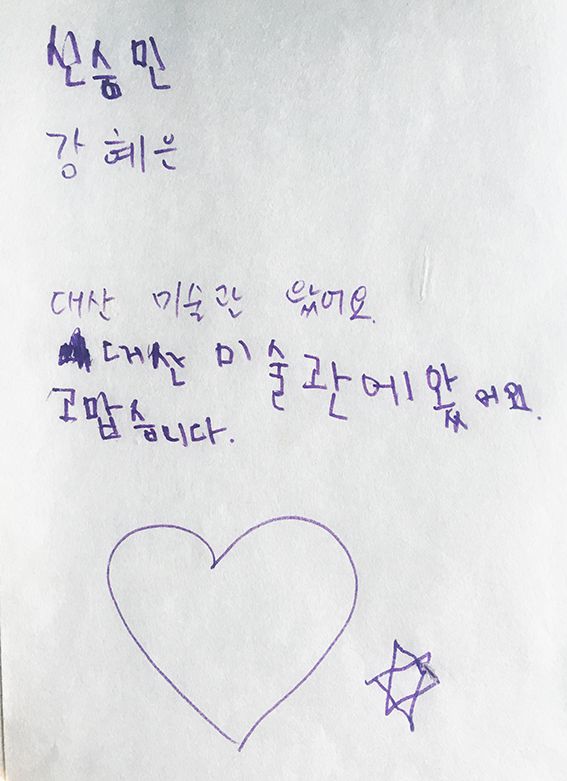 신승민
강혜은
대산 미술관 왔어요.
대산 미술관에왔어요.
고맙습니다.